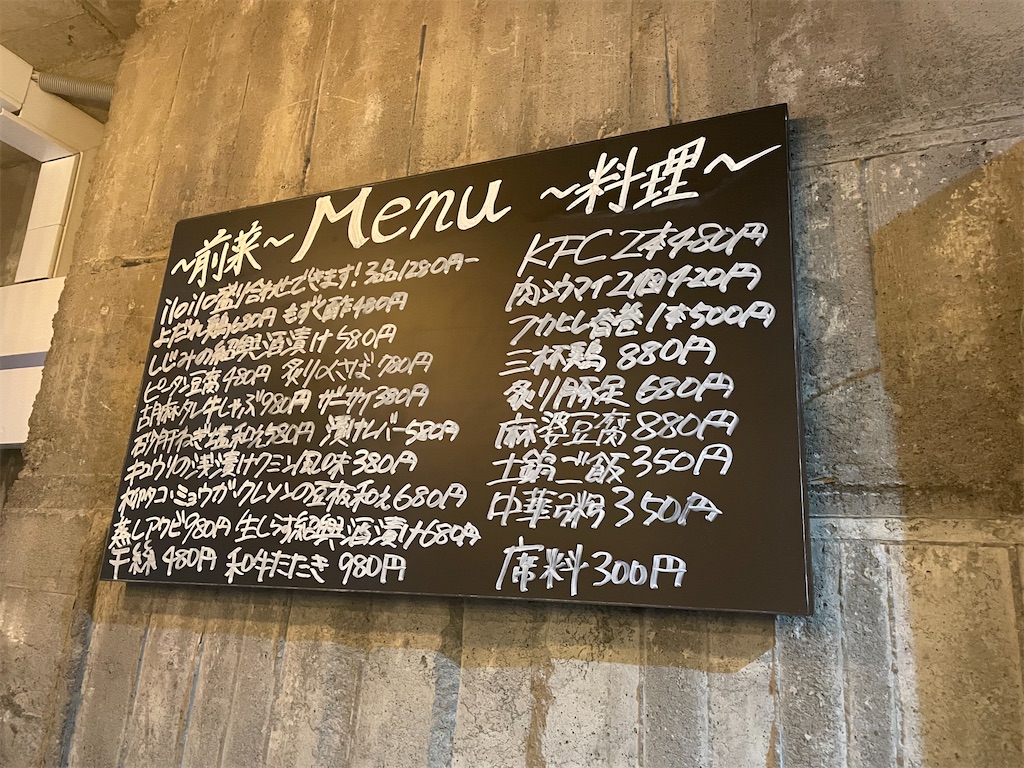 Menu
~前菜~
iloilo盛り合わせできます! 3品1280円ー
よだれ鶏680円 もずく酢480円
しじみの紹興酒漬け580円
ピータン豆腐480円 炙り〆さば780円
胡麻ダレ牛しゃぶ980円 ザーサイ380円
砂肝ねぎ塩和え580円 漬けレバー580円
キュウリの浅漬けクミン風味380円
柳タコ・ミョウガ・クレソンの豆板和え680円
蒸しアワビ980円 生しらす紹興酒漬け680円
干絲 480円 和牛たたき 980円
~料理~
KFC 2本480円
肉シウマイ2個420円
フカヒレ春巻1本500円
三杯鶏 880円
炙り豚足 680円
麻婆豆腐880円
土鍋ご飯350円
中華粥350円
席料300円